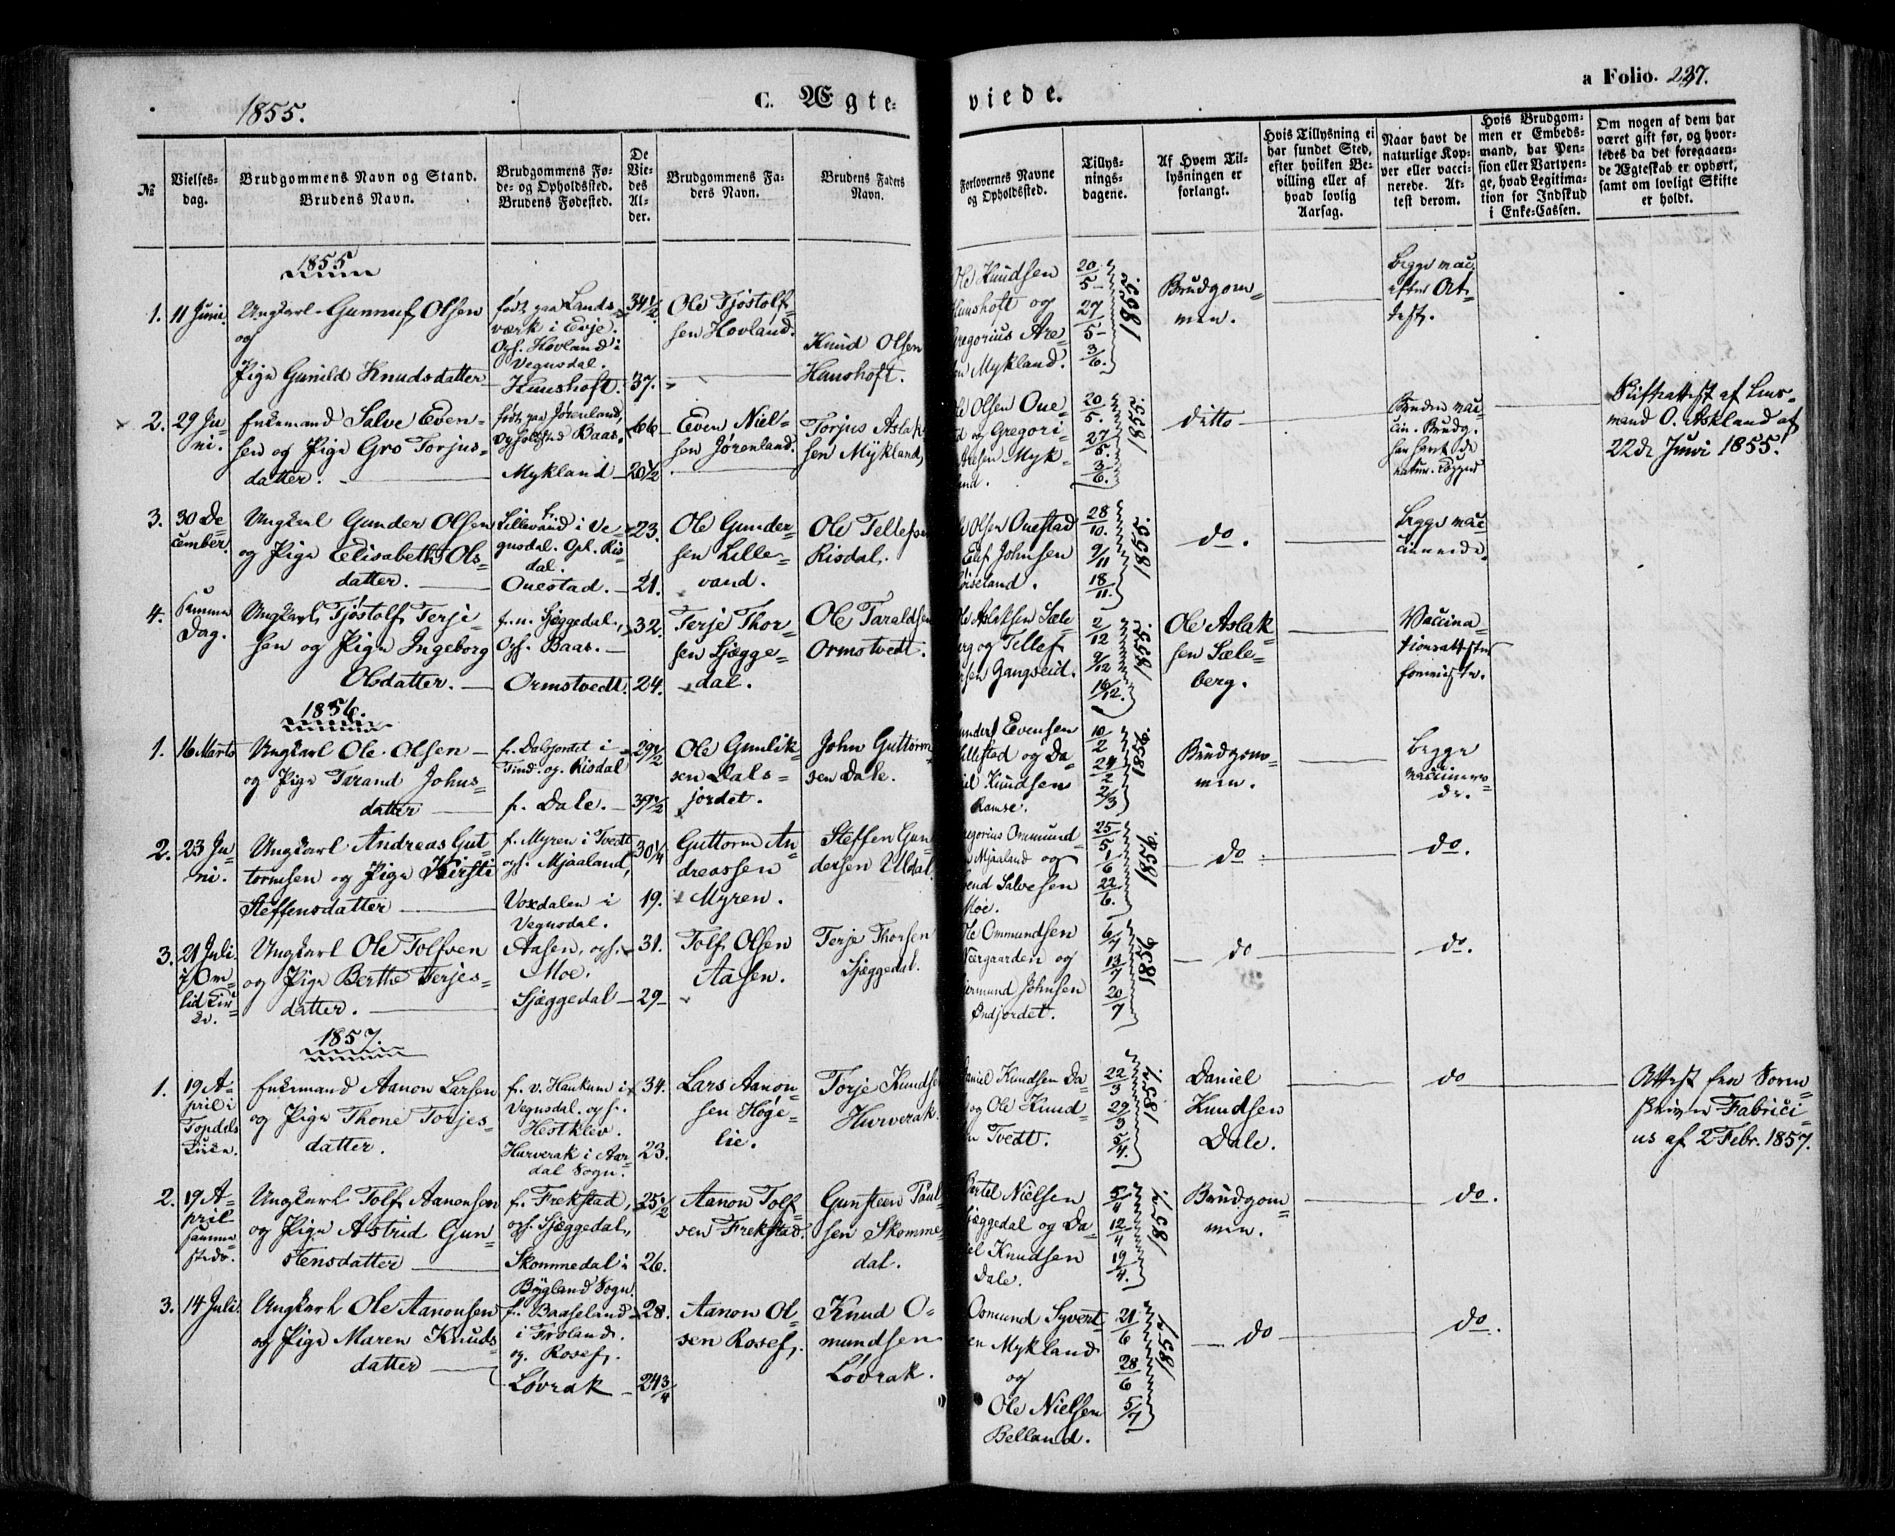 1855.
C. Ægte-
viede.
a Folio. 227.
№
Vielses-
dag.
Brudgommens Navn og Stand.
Brudens Navn.
Brudgommens Fø-
de- og Opholdssted.
Brudens Fødested.
De
Vie-
des
Al-
der.
Brudgommens Fa-
ders Navn.
Brudens Faders
Navn.
Forlovernes Navne
og Opholdssted.
Tillys-
nings-
dagene.
Af Hvem Til-
lysningen er
forlangt.
Hvis Tillysning ei
har fundet Sted,
efter hvilken Be-
villing eller af
hvad lovlig
Aarsag.
Naar havt de
naturlige Kop-
per eller vacci-
nerede. At-
test derom.
Hvis Brudgom-
men er Embeds-
mand, har Pen-
sion eller Vartpen-
ge, hvad Legitima-
tion for Indskud
i Enke-Cassen.
Om nogen af dem har
været gift før, og hvor-
ledes da det foregaaen-
de Ægteskab er ophørt,
samt om lovligt Skifte
er holdt.
1855
1. 11 Juni.
Ungkarl Gunnuf Olsen
og
Pige Gunild Knudsdatter
født paa Lands-
værk i Evje.
Oph. Hovland i
Vegusdal.
Haushoft.
34 1/2.
37.
Ole Tjøstolf-
sen Hovland.
Knud Olsen
Haushoft.
Ole Knudsen
Haushoft og
Gregorius Are-
Mykland.
20/5
27/5
3/6.
1855.
Brudgom-
men.
Begge vac.
efter At-
test.
2. 29 Ju-
ni.
Enkemand Salve Even-
sen og Pige Gro Torjus-
datter.
født paa Jørenland,
Opholdssted Baas.
Mykland
66
20 1/2
Even Niel-
sen Jørenland.
Torjus Aslak-
sen Mykland,
Ole Olsen Oue-
og Gregori-
Aresen Myk-
land.
20/5.
27/5.
3/6.
1855.
ditto
Bruden vac-
cin. Brudg.
har havt de
natur. Kopper
Skifteattest af Lens-
mand O. Askland af
22de Juni 1855.
3. 30 De-
cember.
Ungkarl Gunder Olsen
og Pige Elisabeth Ols-
datter.
Lillevand i Ve-
gusdal. Oph. Ris-
dal.
Ouestad.
23.
21.
Ole Gunder-
sen Lille-
vand.
Ole Tellefsen
Risdal,
Ole Olsen Ouestad
Elef Johnsen
28/10.
9/11
18/11.
1855.
do.
Begge vac-
cinerede.
4. Samme
Dag.
Ungkarl Tjøstolf Terje-
sen og Pige Ingeborg
Olsdatter.
Sjæggedal,
Oph. Baas.
Ormstvedt.
32.
24.
Terje Thor-
sen Sjægge-
dal.
Ole Taraldsen
Ormstvedt.
Ole Aslaksen Sæle-
berg og Tellef
Gangseid.
2/12
9/12
16/12.
1855.
Ole Aslak-
sen Sæle-
berg.
Vaccina-
tionsattester
foreviste.
1856.
1. 16 Marts
Ungkarl Ole Olsen
og Pige Tarand Johns-
datter
f. Dalsjordet i
Tind. og. Risdal
f. Dale.
29 1/2
39 1/2
Ole Gunlik-
sen Dals-
jordet.
John Guttorm-
sen Dale.
Gunder Evensen
Lillestad og Da-
niel Knudsen
Ramse.
10/2
24/2
2/3
1856.
Brudgom-
men.
Begge
vaccinere-
de.
2. 23 Ju-
ni.
Ungkarl Andreas Gut-
tormsen og Pige Kirsti
Steffensdatter
f. Myren i Tvedt
oph. Mjaaland,
Voxdalen i
Vegusdal.
30 1/4
19.
Guttorm An-
dreassen
Myren.
Steffen Gun-
dersen Uldal.
Gregorius Ommund-
Mjaaland og
Salvesen
Moe.
25/5
1/6
22/6.
1856.
do
do.
3. 21 Juli
i Om-
lid Kir-
ke.
Ungkarl Ole Tolfsen
og Pige Berthe Terjes-
datter.
Aasen, oph.
Moe.
Sjæggedal
31.
29
Tolf Olsen
Aasen.
Terje Thorsen
Sjæggedal.
Ole Ommundsen
Nærgaarden og
Johnsen
6/7
13/7
20/7
1856.
do
do.
1857.
1. 19 A-
pril i
Topdals
Kirke.
Enkemand Aanon Larsen
og Pige Thone Torjes-
datter.
f. v. Haukum i
Vegusdal. oph.
Hestklev.
Hurverak i Aar-
dal Sogn.
34.
23.
Lars Aanon-
sen Høge-
lie.
Torje Knudsen
Hurverak.
Daniel Knudsen Da-
og Ole Knud-
sen Tvedt.
22/3
29/3
5/4.
1857.
Daniel
Knudsen
Dale.
do
Attest fra Soren-
skriver Fabrici-
us af 2 Febr. 1857.
2. 19 A-
pril
samme-
steds.
Ungkarl Tolf Aanonsen
og Pige Astrid Gun-
stensdatter
f. Frekstad,
oph. Sjæggedal,
Skommedal i
Bygland Sogn.
25 1/2
26.
Aanon Tolf-
sen Frekstad.
Gunsteen Paul-
sen Skomme-
dal.
Bertel Nielsen
Sjæggedal og Da-
niel Knudsen
Dale.
5/4
12/4
19/4.
1857.
Brudgom-
men.
do.
3. 14 Juli
Ungkarl Ole Aanonsen
og Pige Maren Knuds-
datter
f. Baaseland
i Froland.
og. Rosef.
Løvrak
28.
24 3/4
Aanon Ol-
sen Rosef,
Knud O-
mundsen
Løvrak.
Osmund Syvert-
sen Mykland
og
Ole Nielsen
Belland.
21/6
28/6
5/7
1857.
do
do.